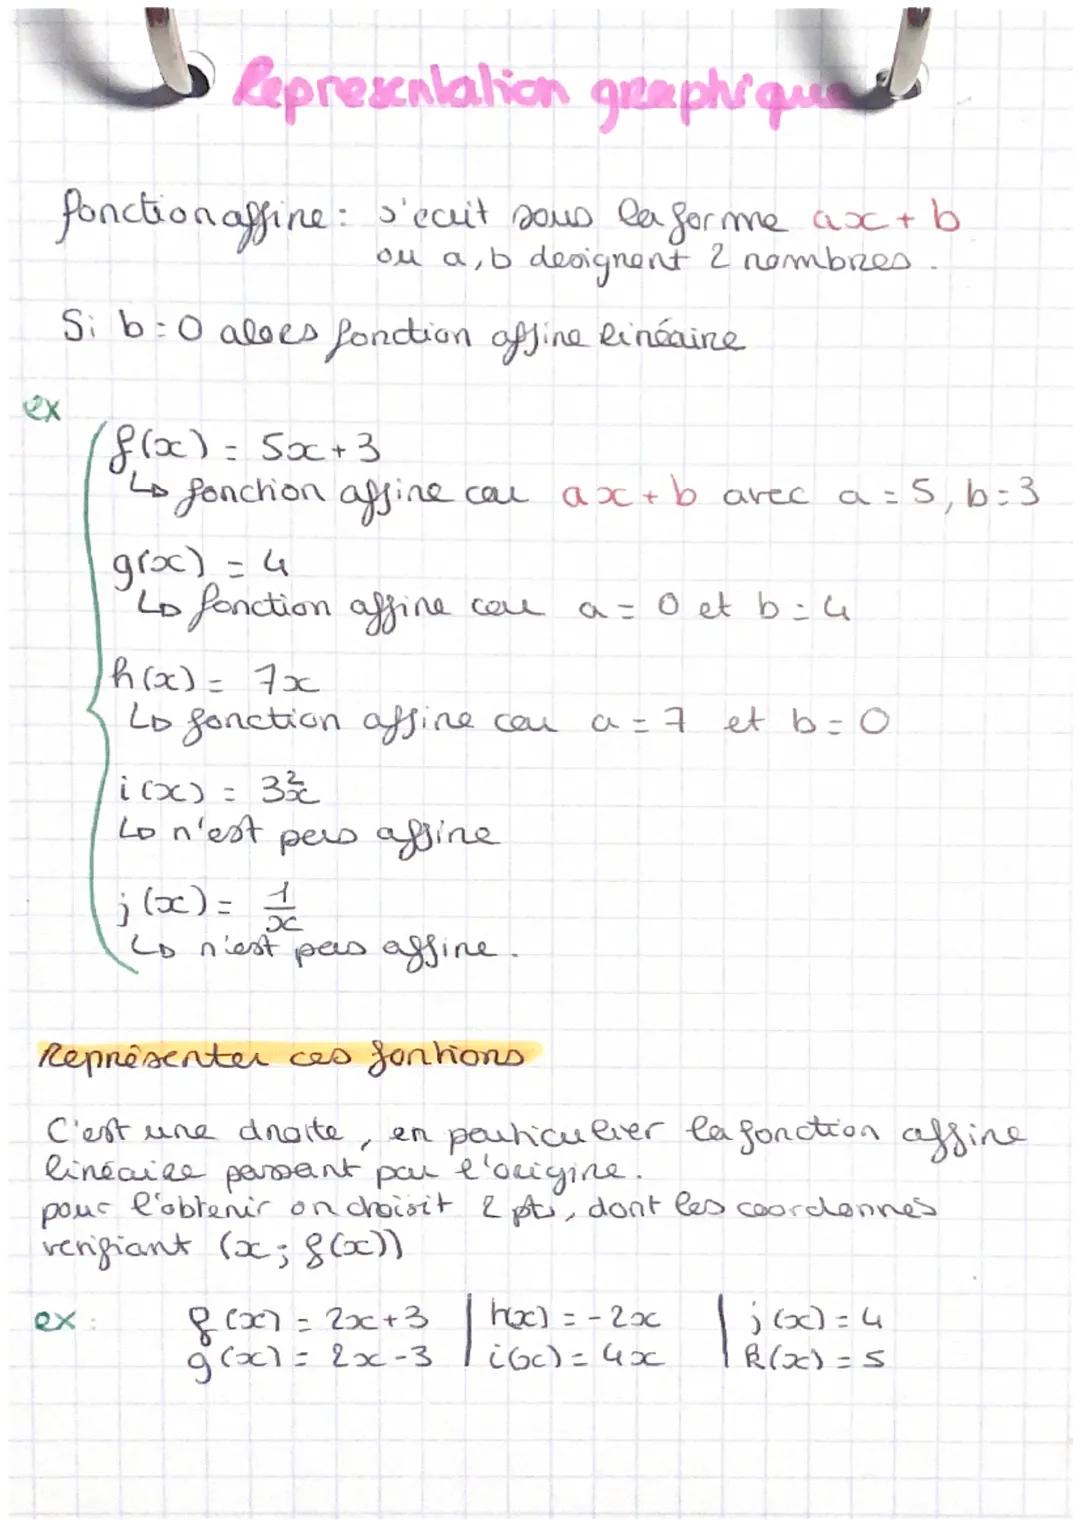 Representation graphique
fonction affine : s'ecrit sous la forme ax + b
ou a, b designent 2 nombres.
Si b = 0 alors fonction affine linéaire
ex
f(x) = 5x + 3
↳ fonction affine car ax + b avec a = 5, b = 3
g(x) = 4
↳ fonction affine car a = 0 et b = 4
h(x) = 7x
↳ fonction affine car a = 7 et b = 0
i(x) = 3x²
↳ n'est pas affine
j(x) = 1/x
↳ n'est pas affine.
Représenter ces fontions
C'est une droite, en particulier la fonction affine
linéaire passant par l'origine.
pour l'obtenir on choisit 2 pts, dont les coordonnés
verifiant (x ; f(x))
ex : f(x) = 2x + 3 | h(x) = -2x | j(x) = 4
g(x) = 2x - 3 | i(x) = 4x | k(x) = 5